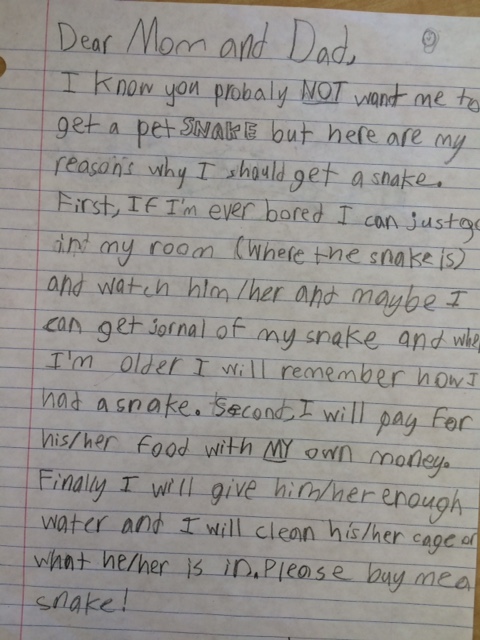 Dear Mom and Dad,
9
I know you probaly NOT want me to
get a pet SNAKE but here are my
reasons why I should get a snake.
First, If I'm ever bored I can just go
int my room (where the snake is)
and watch him/her and maybe I
can get jornal of my snake and whe
I'm older I will remember how I
had a snake. Second, I will pay for
his/her food with MY own money.
Finally I will give him/her enough
water and I will clean his/her cage or
what he/her is in. Please buy me a
snake!